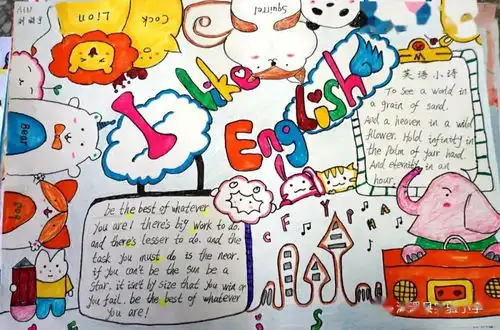 Lion
Cock
Squirrel
I like
English
Bear
英语小诗
To see a world in
a grain of sand.
And a heaven in a wild
flower. Hold infinity in
the palm of your hand.
And eternity in an
hour.
be the best of whatever
You are! there's big work to do.
and there's lesser to do. and the
task you must do is the near.
if you can't be the sun be a
Star. it isn't by size that you win or
you fail. be the best of whatever
you are!
C F Y P H A
S